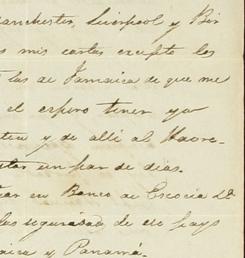 anchester, Liverpool y Bir
s mis cartas excepto las
las de Jamaica de que me
el espero tener ya
y de alli al Havre.
un par de dias.
en Banco de Escocia
las de ese pays
aica y Panamá.